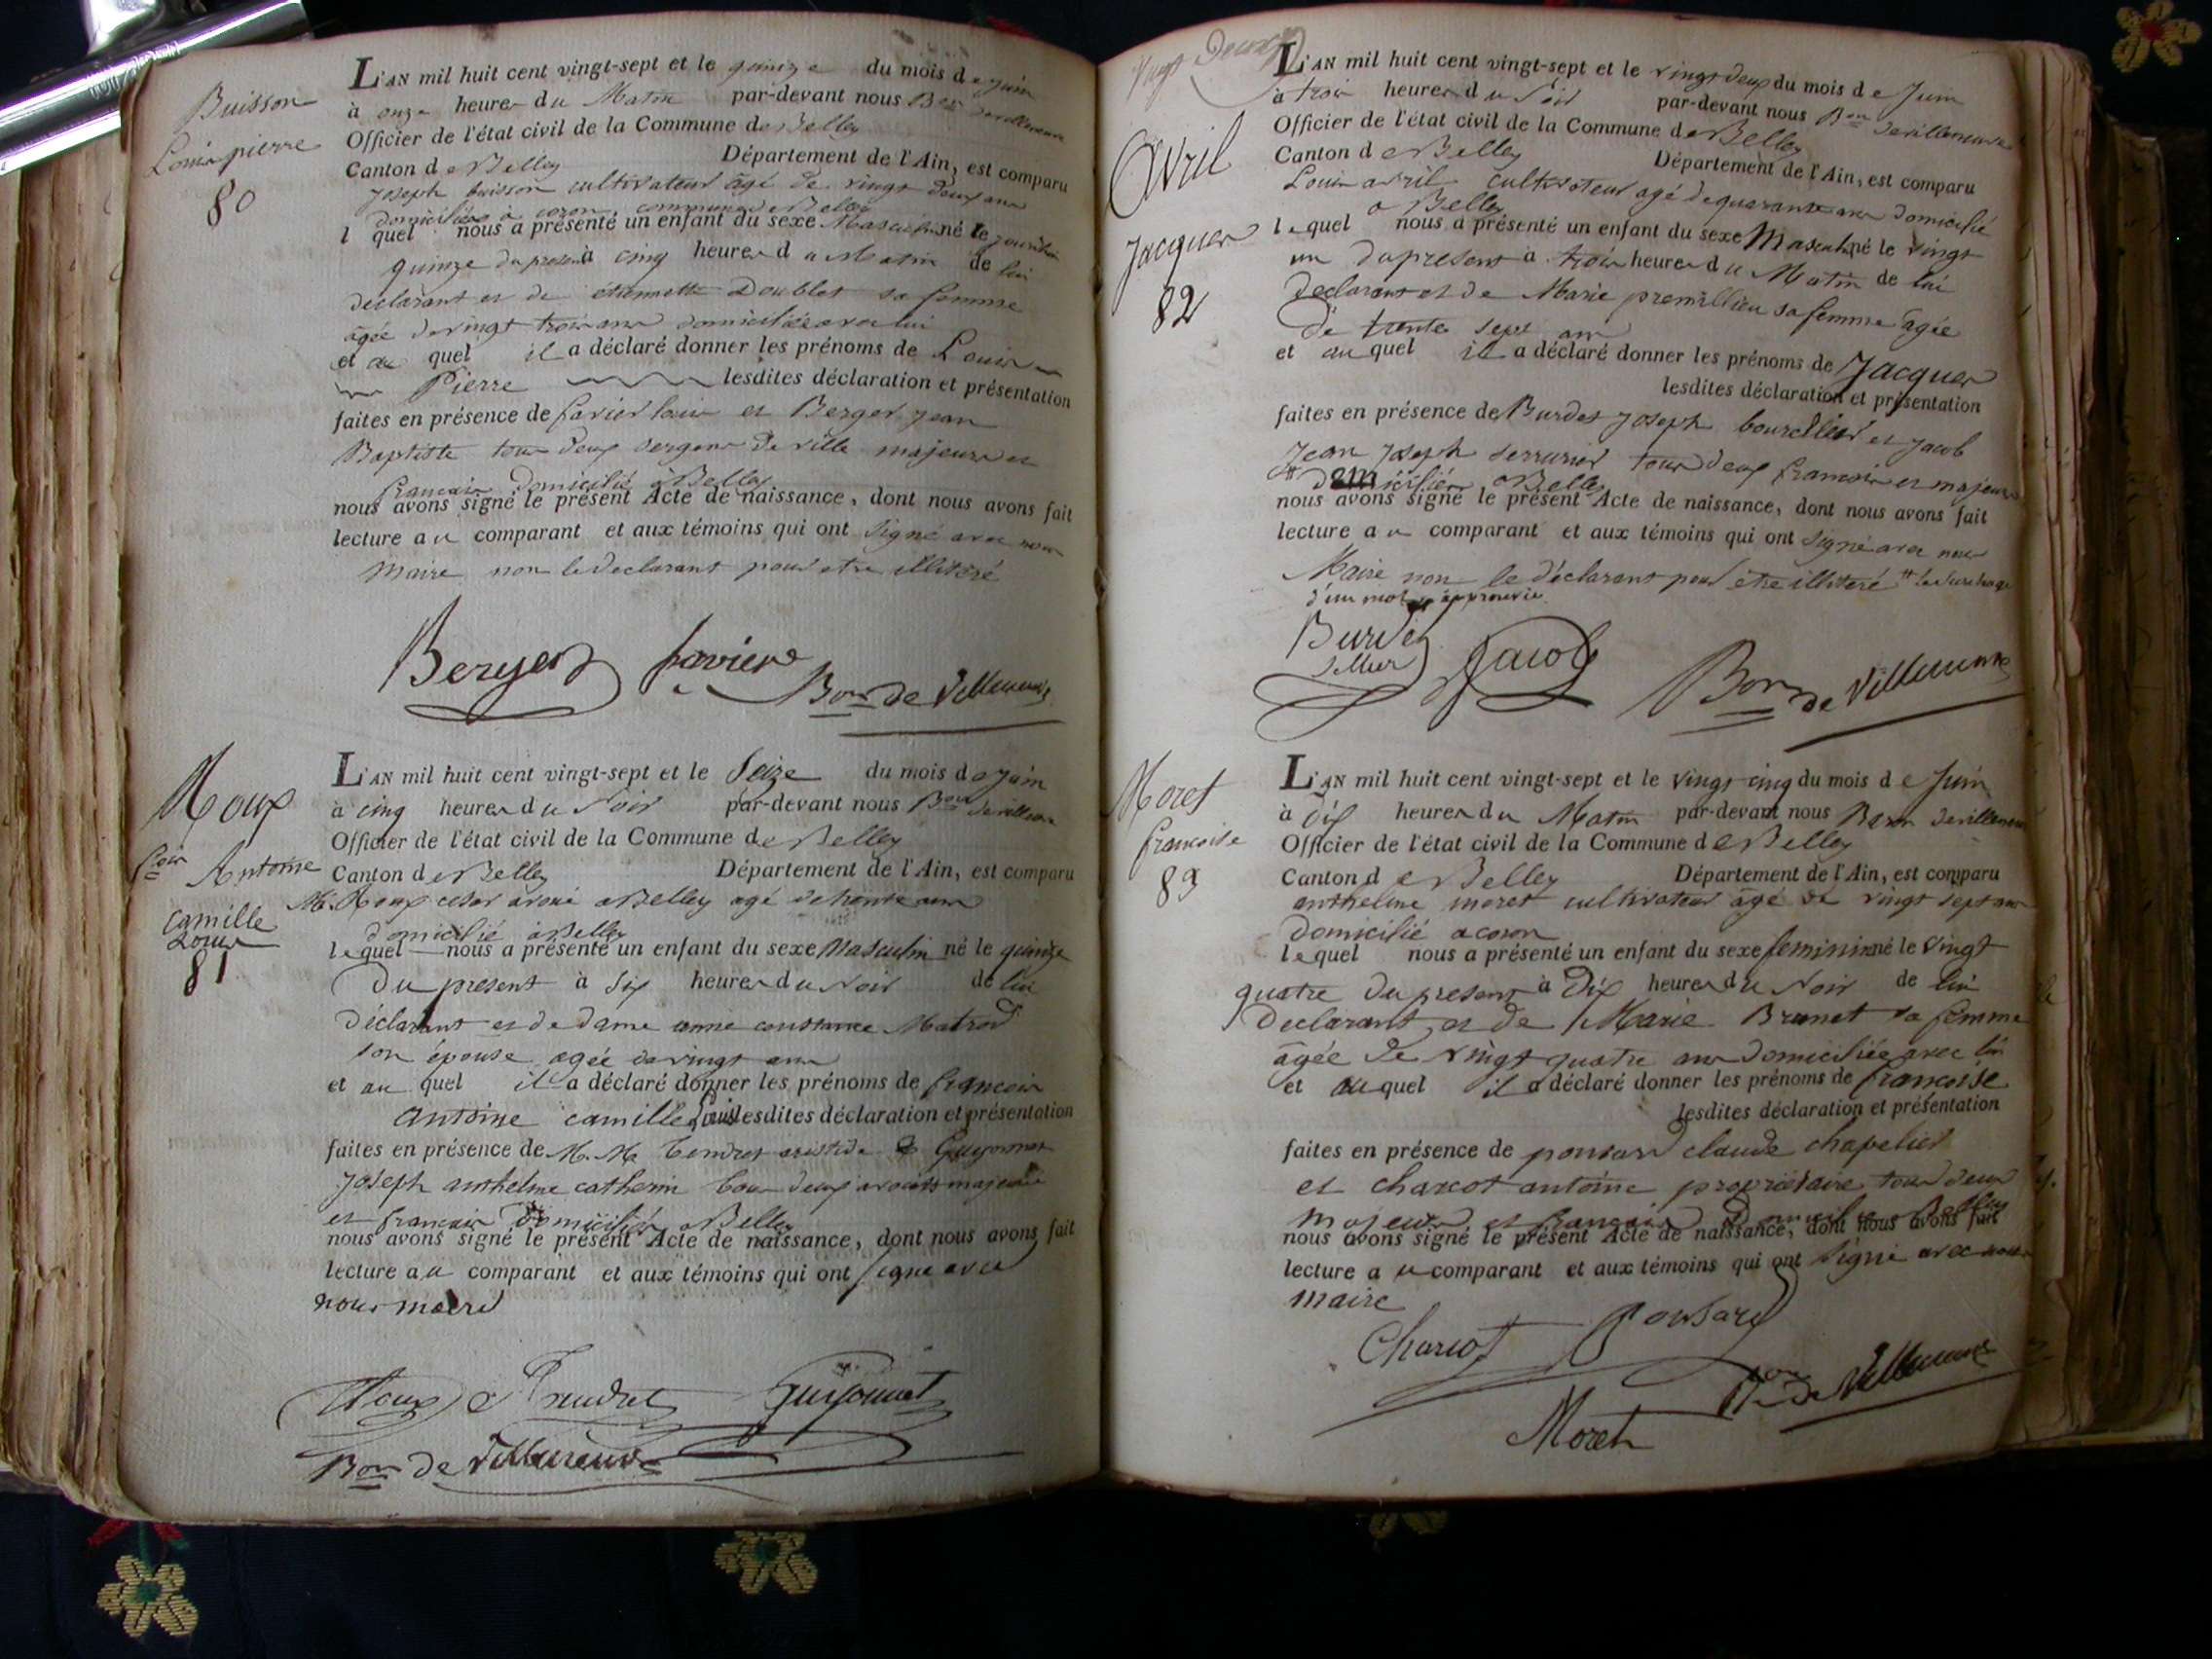 Buisson
Louis pierre
80
L'AN mil huit cent vingt-sept et le quinze du mois de juin
à onze heures du Matin par-devant nous Bon devilleneuve
Officier de l'état civil de la Commune de Belley
Canton de Belley Département de l'Ain, est comparu
Joseph buisson cultivateur âgé de vingt deux ans
domicilié à coron commune de Belley
l quel nous a présenté un enfant du sexe Masculin né le jourdhui
quinze du present à cinq heures du Matin de lui
declarant et de étiennette Doublet sa femme
âgée de vingt trois ans domiciliée avec lui
et au quel il a déclaré donner les prénoms de Louis
Pierre lesdites déclaration et présentation
faites en présence de favier louis et Berger jean
Baptiste tous deux sergens de ville majeurs et
francais domicilié à Belley
nous avons signé le présent Acte de naissance, dont nous avons fait
lecture au comparant et aux témoins qui ont signé avec nous
maire non le declarant pour etre illiteré
Berger favier
Bon de Villeneuve
Roux
fcois Antoine
camille
Louis
81
L'AN mil huit cent vingt-sept et le Seize du mois de juin
à cinq heures du soir par-devant nous Bon devilleneuve
Officier de l'état civil de la Commune de Belley
Canton de Belley Département de l'Ain, est comparu
M. Roux cesar avoué a Belley agé de trente ans
domicilié à Belley
lequel nous a présenté un enfant du sexe Masculin né le quinze
Du present à Six heures du soir de lui
déclarant et de dame anne constance Matrod
son épouse agée de vingt ans
et au quel il a déclaré donner les prénoms de francois
antoine camille Louis lesdites déclaration et présentation
faites en présence de M. M. tendret aristide & Guyonnet
joseph anthelme catherin tous deux avocats majeurs
et francais domiciliés a Belley
nous avons signé le présent Acte de naissance, dont nous avons fait
lecture au comparant et aux témoins qui ont signé avec
nous maire
Roux A Tendret Guyonnet
Bon de Villeneuve
Vingt Deux
Avril
Jacques
82
L'AN mil huit cent vingt-sept et le vingt deux du mois de Juin
à trois heures du soir par-devant nous Bon devilleneuve
Officier de l'état civil de la Commune de Belley
Canton de Belley Département de l'Ain, est comparu
Louis avril cultivateur agé de quarante ans domicilié
a Belley
lequel nous a présenté un enfant du sexe Masculin né le vingt
un du present à trois heures du Matin de lui
declarant et de Marie premillieu sa femme agée
de trente sept ans
et au quel il a déclaré donner les prénoms de Jacques
lesdites déclaration et présentation
faites en présence de Burdet joseph bourellier et jacob
jean joseph serrurier tous deux francois et majeurs
# domiciliés a Belley
nous avons signé le présent Acte de naissance, dont nous avons fait
lecture au comparant et aux témoins qui ont signé avec nous
Maire non le déclarant pour être illiteré # la surcharge
d'un mot approuvée
Burdet
Sellier Jacob
Bon de Villeneuve
Moret
francoise
83
L'AN mil huit cent vingt-sept et le vingt cinq du mois de Juin
à Dix heures du Matin par-devant nous Baron devilleneuve
Officier de l'état civil de la Commune de Belley
Canton de Belley Département de l'Ain, est comparu
anthelme moret cultivateur âgé de vingt sept ans
domicilié a coron
lequel nous a présenté un enfant du sexe feminin né le vingt
quatre du present à Dix heures du soir de lui
declarant et de Marie Brunet sa femme
âgée de vingt quatre ans domiciliée avec lui
et au quel il a déclaré donner les prénoms de françoise
lesdites déclaration et présentation
faites en présence de ponsard claude chapelier
et charcot antoine propriétaire tous deux
majeurs et francais domiciliés a Belley
nous avons signé le présent Acte de naissance, dont nous avons fait
lecture au comparant et aux témoins qui ont signé avec nous
maire
Charcot Ponsard
Bon de Villeneuve
Moret